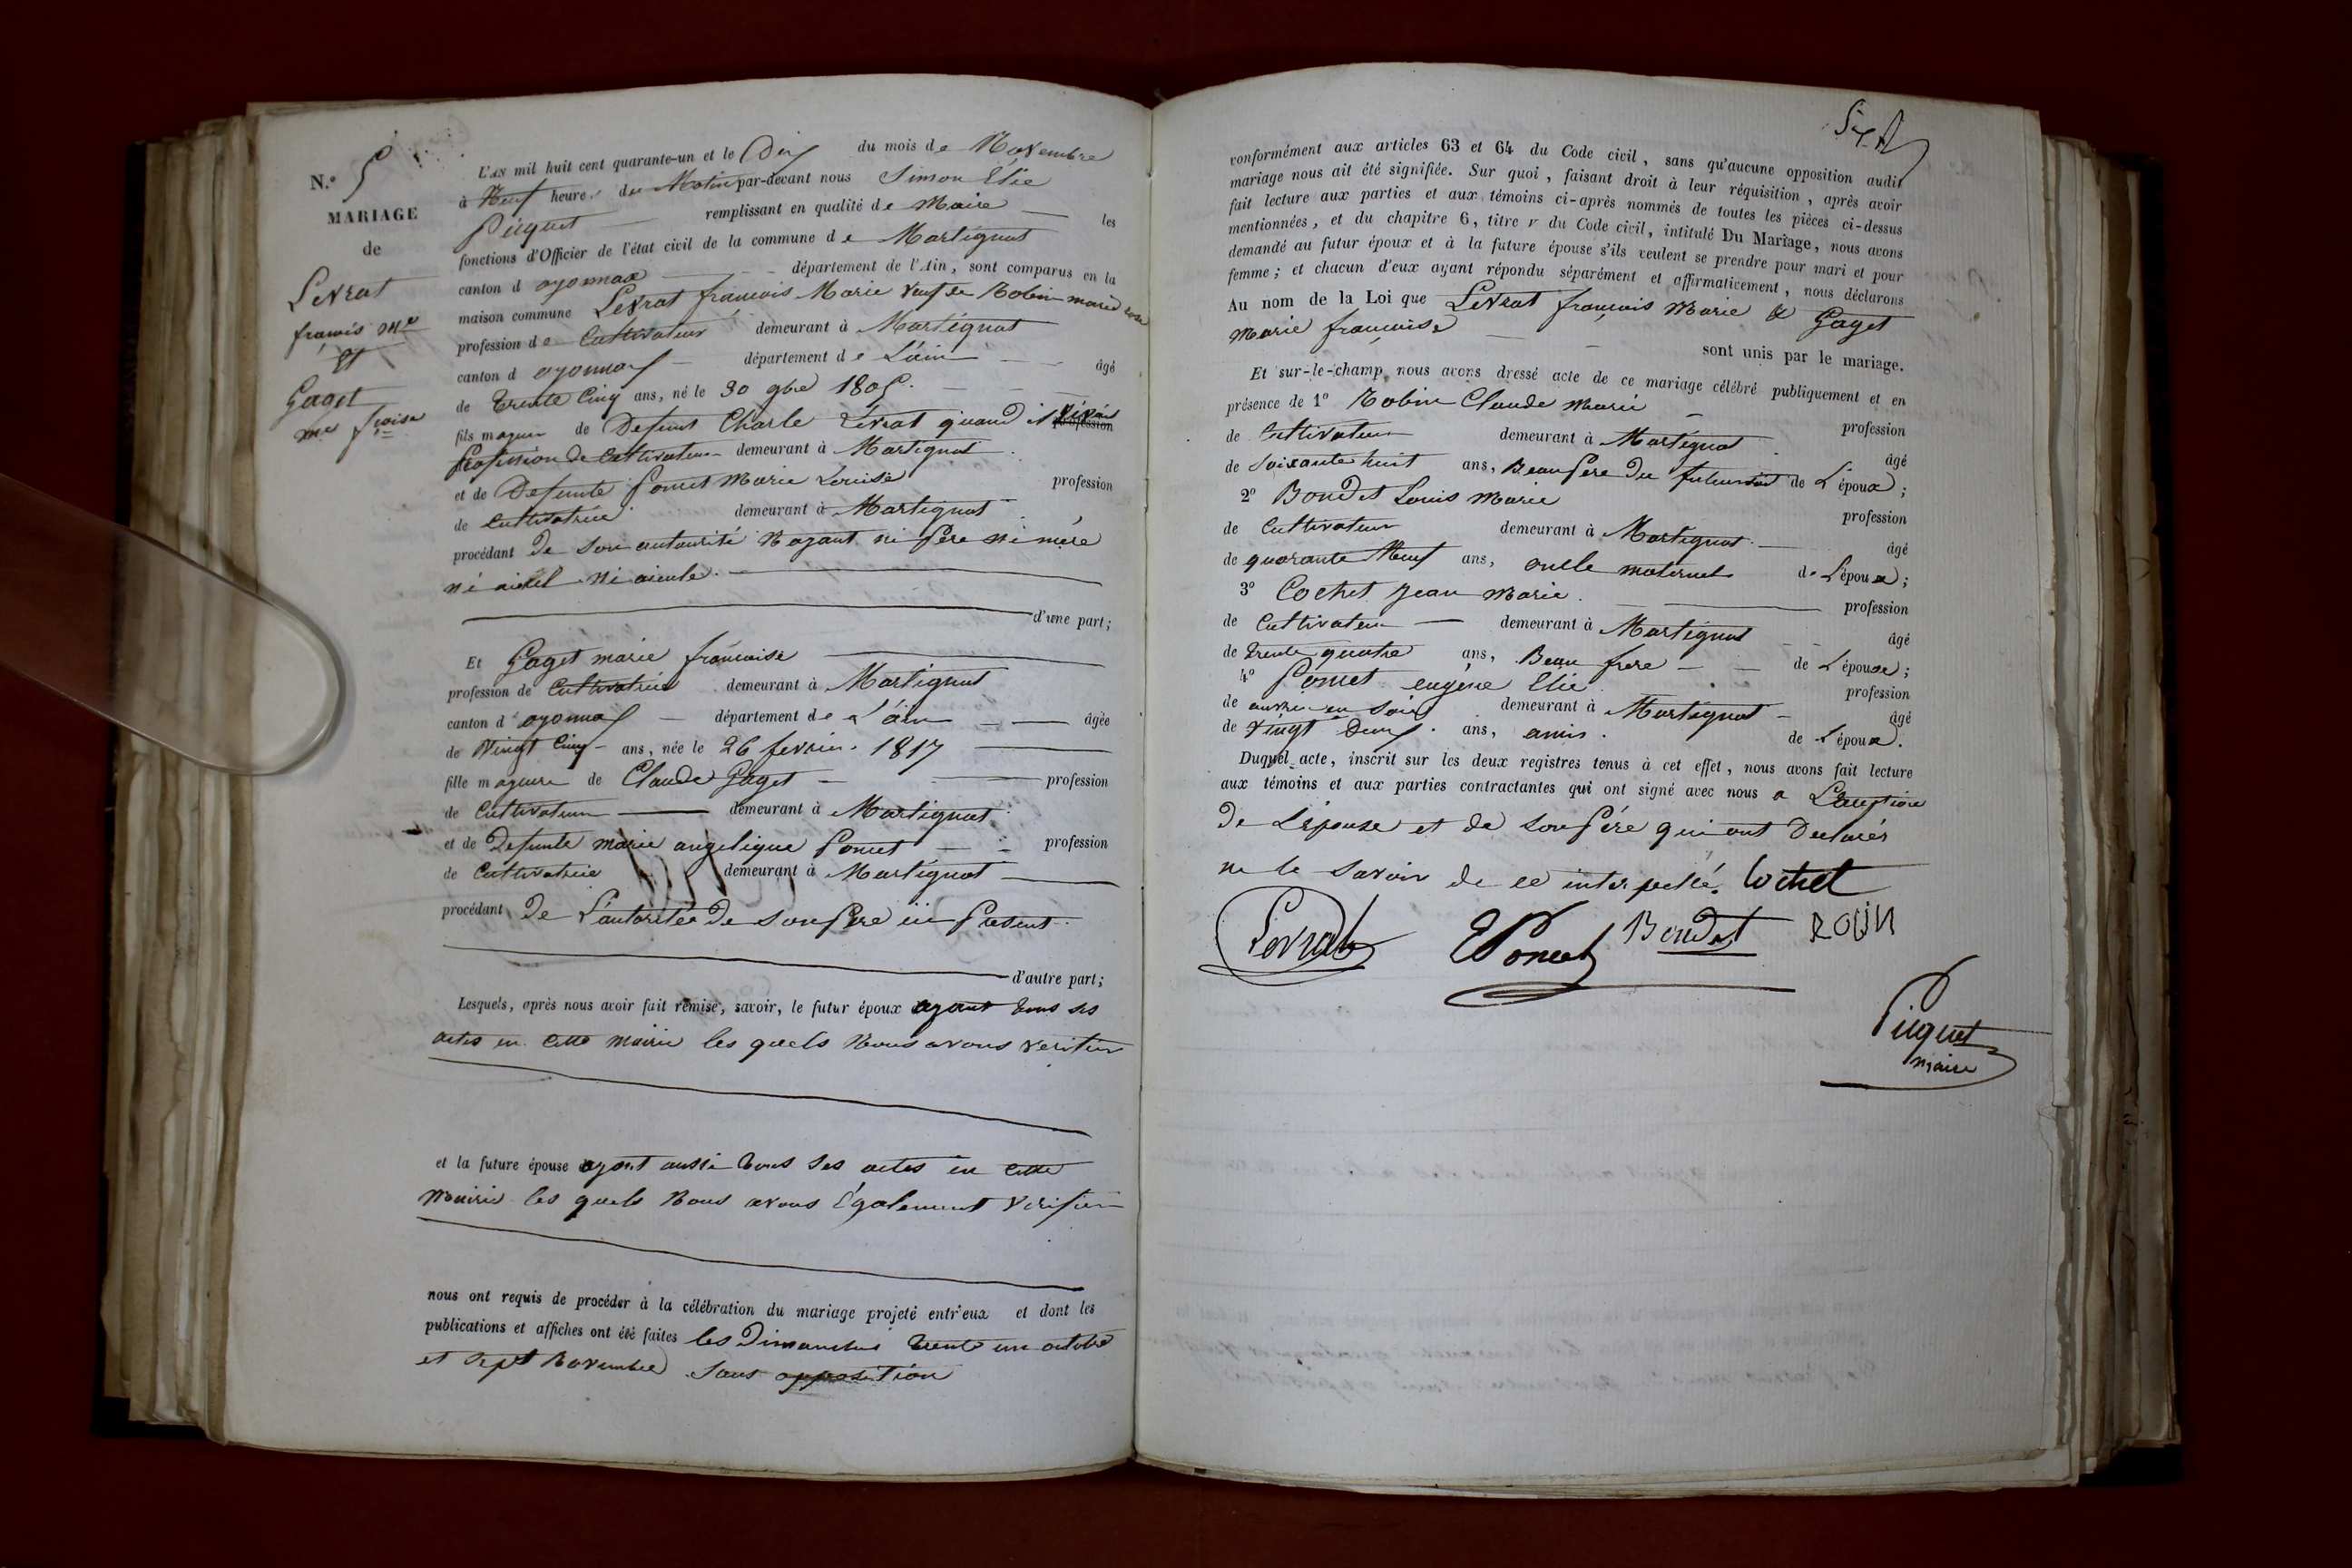 N.º 5
MARIAGE
de
Levrat
francois Mie
Et
Gaget
Mie fcoise
L'AN mil huit cent quarante-un et le Dix du mois de Novembre
à Neuf heure du Matin par-devant nous Simon Elie
Piquet remplissant en qualité de Maire les
fonctions d'Officier de l'état civil de la commune de Martignat
canton d oyonnax département de l'Ain, sont comparus en la
maison commune Levrat françois Marie veuf de Robin marie
profession de Cultivateur demeurant à Martignat
canton d oyonnax département de L'ain âgé
de trente Cinq ans, né le 30 9bre 1805.
fils majeur de Defunt Charle Levrat quand il vivai
profession de Cultivateur demeurant à Martignat
et de Defunte Poncet Marie Louise profession
de Cultivatrice demeurant à Martignat
procédant de son autaurité Nayant ni Pere ni mére
ni aieul ni aieule.
d'une part;
Et Gaget marie francoise
profession de Cultivatrice demeurant à Martignat
canton d oyonnax département de L'ain âgée
de Vingt Cinq ans, née le 26 fevrier 1817
fille majeure de Claude Gaget profession
de Cultivateur demeurant à Martignat
et de Defunte marie angelique Poncet profession
de Cultivatrice demeurant à Martignat
procédant De L'autoritée De son Pere ici Présent
d'autre part;
Lesquels, après nous avoir fait remise, savoir, le futur époux ayant tous ses
actes en cette Mairie les quels Nous avons verifier
et la future épouse ayant aussi tous ses actes en cette
Mairie les quels Nous avons également Verifier
nous ont requis de procéder à la célébration du mariage projeté entr'eux et dont les
publications et affiches ont été faites les Dimanches trente un octobre
et sept Novembre sans opposition
conformément aux articles 63 et 64 du Code civil, sans qu'aucune opposition audit
mariage nous ait été signifiée. Sur quoi, faisant droit à leur réquisition, après avoir
fait lecture aux parties et aux témoins ci-après nommés de toutes les pièces ci-dessus
mentionnées, et du chapitre 6, titre v du Code civil, intitulé Du Mariage, nous avons
demandé au futur époux et à la future épouse s'ils veulent se prendre pour mari et pour
femme; et chacun d'eux ayant répondu séparément et affirmativement, nous déclarons
Au nom de la Loi que Levrat françois Marie & Gaget
Marie françoise
sont unis par le mariage.
Et sur-le-champ nous avons dressé acte de ce mariage célébré publiquement et en
présence de 1º Robin Claude Marie profession
de Cultivateur demeurant à Martignat âgé
de soixante huit ans, Beau Pere du futur de L'époux;
2º Bondet Louis Marie profession
de Cultivateur demeurant à Martignat âgé
de quarante Neuf ans, oncle maternel de L'époux;
3º Cochet Jean Marie profession
de Cultivateur demeurant à Martignat âgé
de trente quatre ans, Beau frere de L'épouse;
4º Poncet eugène Elie profession
de en Soie demeurant à Martignat âgé
de vingt Deux ans, amis de L'époux.
Duquel acte, inscrit sur les deux registres tenus à cet effet, nous avons fait lecture
aux témoins et aux parties contractantes qui ont signé avec nous a L'exeption
De L'épouse et de son Pére qui ont Declarés
ne le savoir de ce interpellé. Cochet
Levrat EPoncet Bondet ROBIN
Piquet
maire